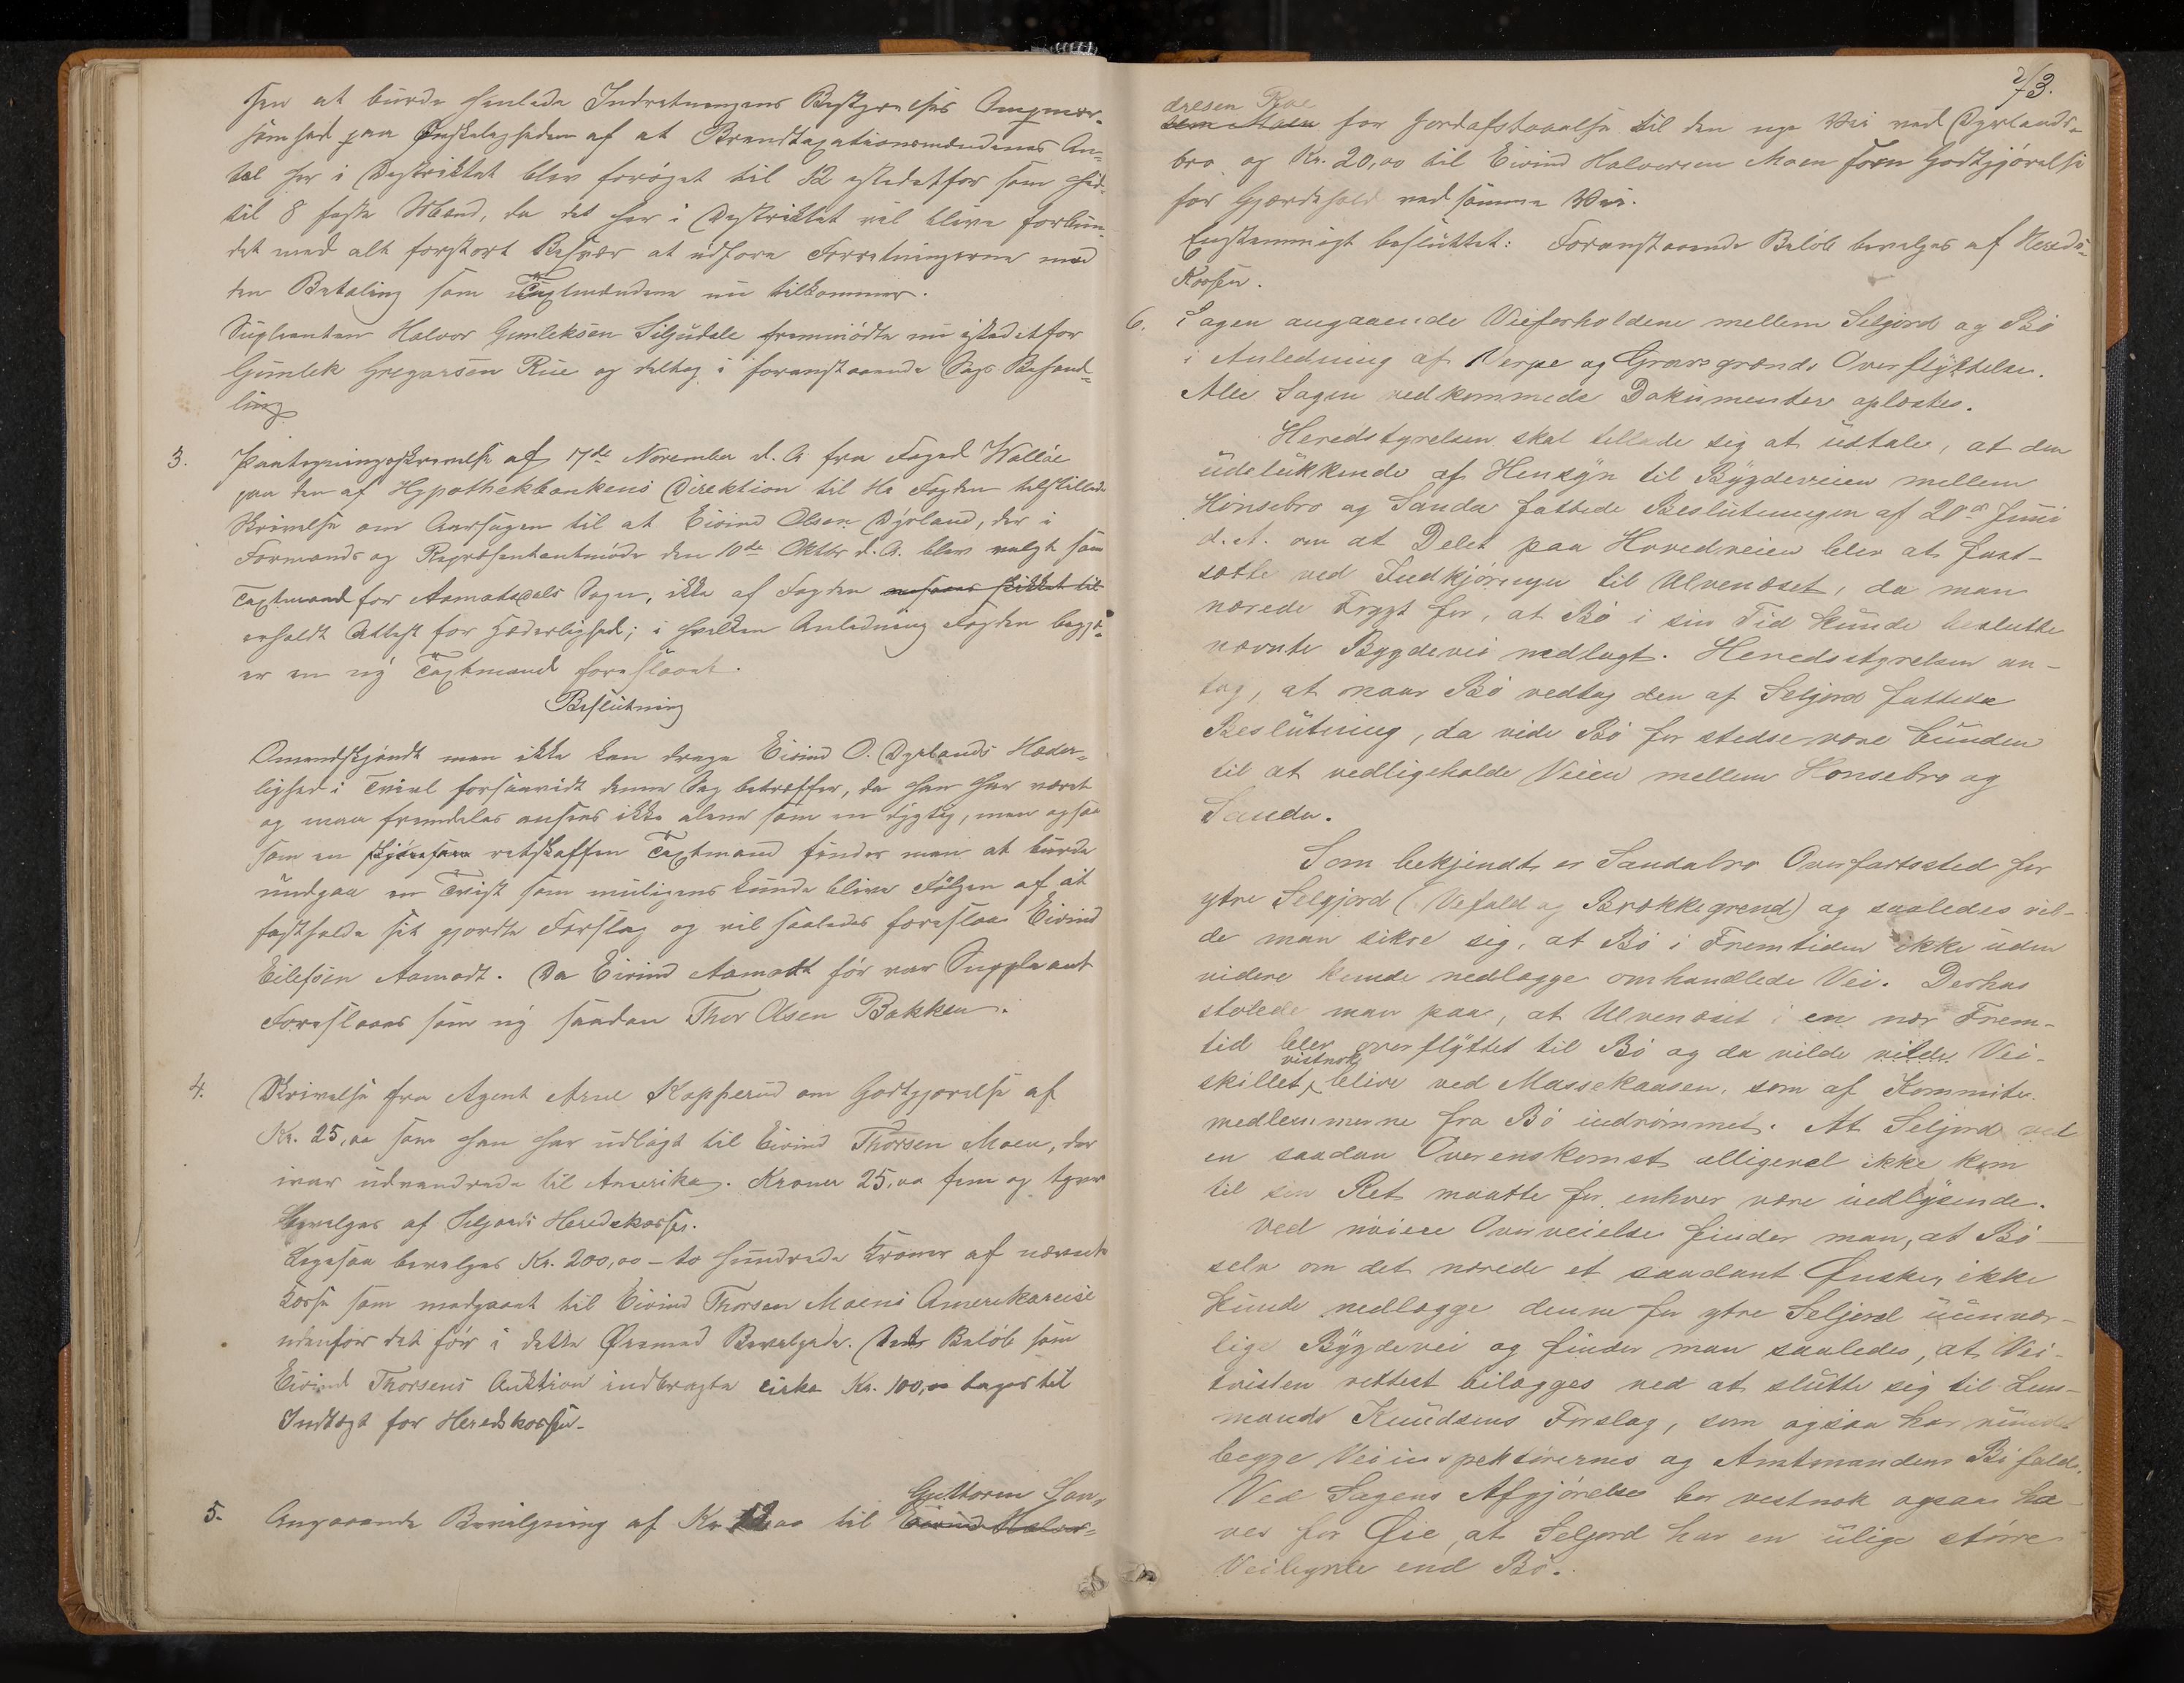 sen at burde henlede Indretningens Bestyrelses Opmærk-
somhed paa Ønskeligheden af at Brandtaxationsmændenes An-
tal her i Distriktet blev forøget til 12 istedetfor som hid-
til 8 faste Mænd, da det her i Distriktet vil blive forbun-
det med alt forstort Besvær at udføre Forretningerne med
den Betaling som Taxtmændene nu tilkommer.
Supleanten Halvor Gunleksen Siljudale fremmødte nu istedetfor
Gunlek Gregarsen Rue og deltog i foranstaaende Sags Behand-
ling
3. Paategningsskrivelse af 17de November d. A. fra Foged Walløe
paa den af Hypothekbankens Direktion til Hr Fogden tilstillede
Skrivelse om Aarsagen til at Eivind Olsen Dyrland, der i
Formands og Repræsentantmøde den 10de Oktbr d. A. blev valgt som
Taxtmand for Aamotsdals Sogn, ikke af Fogden
erholdt Attest for Hæderlighed; i hvilken Anledning Fogden begjæ-
rer en ny Taxtmand foreslaaet.
Beslutning
Omendskjøndt man ikke kan drage Eivind O. Dyrlands Hæder-
lighed i Tvivl forsaavidt denne Sag betræffer, da han har været
og maa fremdeles ansees ikke alene som en dygtig, men ogsaa
som en retskaffen Taxtmand finder man at burde
undgaa en Tvist som muligens kunde blive Følgen af at
fastholde sit gjordte Forslag og vil saaledes foreslaa Eivind
Eilefsen Aamodt. Da Eivind Aamodt før var Suppleant
Foreslaaes som ny saadan Thor Olsen Bakken.
4. Skrivelse fra Agent Arne Kopperud om Godtgjørelse af
Kr. 25,00 som han har udlagt til Eivind Thorsen Moen, der
ivaar udvandrede til Amerika. Kroner 25,00 fem og tyve
bevilges af Seljords Heredskasse.
Ligesaa bevilges Kr. 200,00 – to hundrede Kroner af nævnte
Kasse som medgaaet til Eivind Thorsen Moens Amerikareise
udenfor det før i dette Øiemed Bevilgede. Det Beløb som
Eivind Thorsens Auktion indbragte cirka Kr. 100,00 tages til
Indtægt for Heredskassen.
Guttorm Søn-
5. Angaaende Bevilgning af Kr 12,00 til Eivind Halvor-
73.
dresen Roe
sen Moen for Jordafstaaelse til den nye Vei ved Dyrlands-
bro og Kr. 20,00 til Eivind Halvorsen Moen som Godtgjørelse
for Gjærdehold ved samme Vei.
Enstemmigt besluttet: Foranstaaende Beløb bevilges af Hereds-
Kassen.
6. Sagen angaaende Veiforholdene mellem Seljord og Bø
i Anledning af Verpe og Gravsgrænds Overflyttelse.
Alle Sagen vedkommede Dokumenter oplæstes.
Heredstyrelsen skal tillade sig at udtale, at den
udelukkende af Hensyn til Bygdeveien mellem
Hønsebro og Sanda fattede Beslutningen af 20de Juni
d. A. om at Delet paa Hovedveien blev at fast-
sætte ved Indkjøringen til Ulvenæset, da man
nærede Frygt for, at Bø i sin Tid kunde beslutte
nævnte Bygdevei nedlagt. Heredsstyrelsen an-
tog, at naar Bø vedtog den af Seljord fattede
Beslutning, da vide Bø for stedse være bunden
til at vedligeholde Veien mellem Hønsebro og
Sanda.
Som bekjendt er Sandabro Overfartssted for
ytre Selgjord (Vefald og Brækkegrend) og saaledes vil-
de man sikre sig, at Bø i Fremtiden ikke uden
videre kunde nedlægge omhandlede Vei. Derhos
stolede man paa, at Ulvenæset i en nær Frem-
tid blev overflyttet til Bø og da vilde vilde Vei-
vistnok
skillet blive ved Massekaasen, som af Kommite-
medlemmerne fra Bø indrømmet. At Seljord ved
en saadan Overenskomst alligevel ikke kom
til sin Ret maatte for enhver være indlysende.
Ved nøiere Overveielse finder man, at Bø
selv om det nærede et saadant Ønske, ikke
kunde nedlægge denne for ytre Seljord uunvær-
lige Bygdevei og finder man saaledes, at Vei-
tvisten rettest bilægges ved at slutte sig til Lens-
mands Knudsens Forslag, som ogsaa har vundet
begge Veiinspektørernes og Amtmandens Bifald.
Ved Sagens Afgjørelse bør vestnok ogsaa ha-
ves for Øie, at Seljord har en ulige større
Veibyrde end Bø.